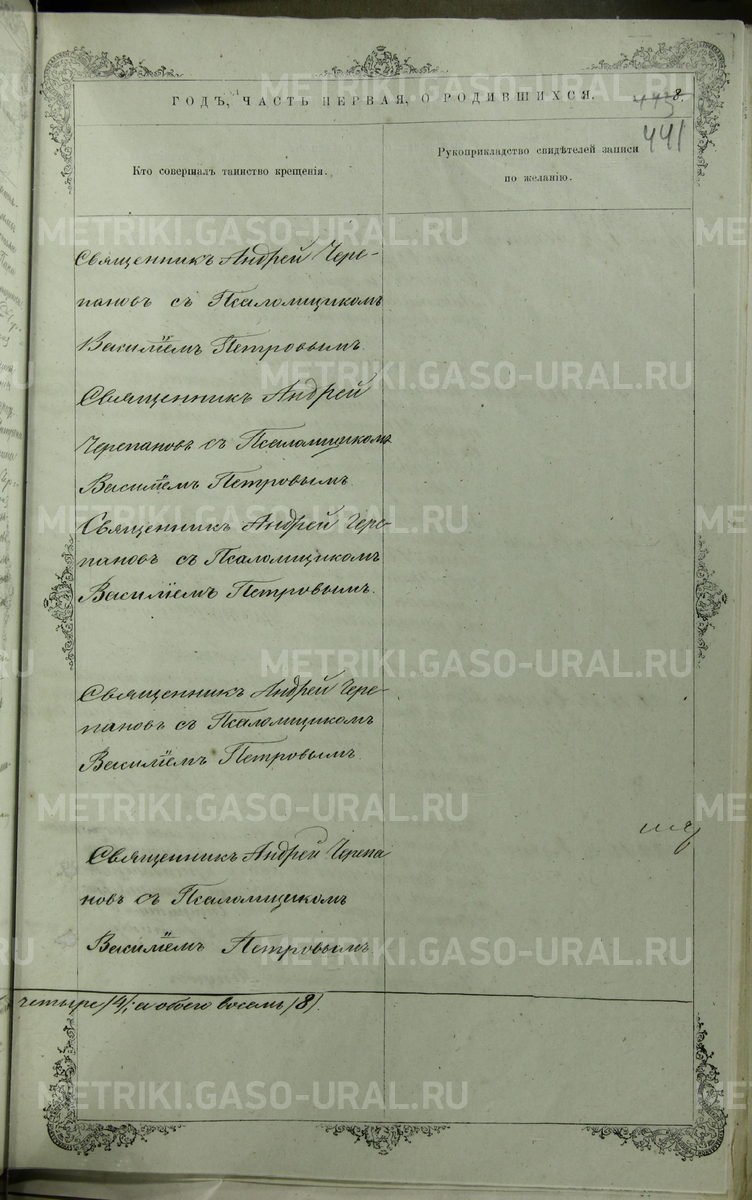 ГОДЪ, ЧАСТЬ ПЕРВАЯ, О РОДИВШИХСЯ.
8.
441
Кто совершалъ таинство крещенія.
Рукоприкладство свидѣтелей записи
по желанію.
Священникъ Андрей Чере-
пановъ съ Псаломщикомъ
Василіемъ Петровымъ.
Священникъ Андрей
Черепановъ съ Псаломщикомъ
Василіемъ Петровымъ.
Священникъ Андрей Чере-
пановъ съ Псаломщикомъ
Василіемъ Петровымъ.
Священникъ Андрей Чере-
пановъ съ Псаломщикомъ
Василіемъ Петровымъ
Священникъ Андрей Черепа
новъ съ Псаломщикомъ
Василіемъ Петровымъ.
четыре /4/, а обоего восемь /8/.
METRIKI.GASO-URAL.RU